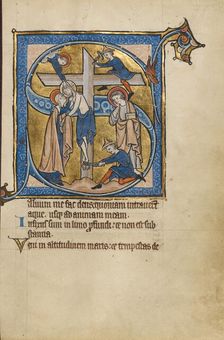 Saluum me fac deus quoniam intrauerūt
aque usq; ad animam meam.
Infixus sum in limo ꝓfundi: ⁊ non est sub
stantia.
Veni in altitudinem maris: ⁊ tempestas de